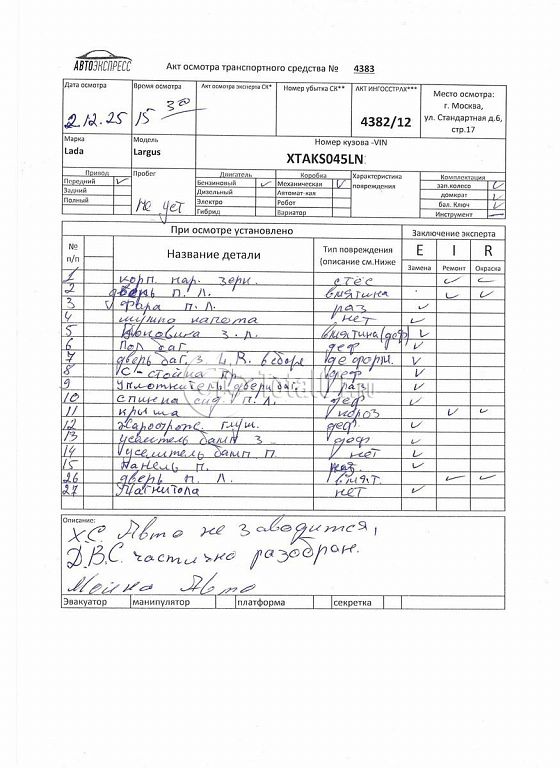 АВТОЭКСПРЕСС
Акт осмотра транспортного средства № 4383
Дата осмотра
2.12.25
Время осмотра
15 30
Акт осмотра эксперта СК*
Номер убытка СК**
АКТ ИНГОССТРАХ***
4382/12
Место осмотра:
г. Москва,
ул. Стандартная д.6,
стр.17
Марка
Lada
Модель
Largus
Номер кузова -VIN
XTAKS045LN
Привод
Передний
Задний
Полный
Пробег
Не уст
Двигатель
Бензиновый
Дизельный
Электро
Гибрид
Коробка
Механическая
Автомат-кая
Робот
Вариатор
Характеристика
повреждения
Комплектация
зап.колесо
домкрат
бал. Ключ
Инструмент
При осмотре установлено
Заключение эксперта
№
п/п
Название детали
Тип повреждения
(описание см.Ниже
E I R
Замена Ремонт Окраска
1 корп нар. зерк. стёс
2 дверь п. л. вмятина
3 фара п. л. раз
4 капота нет
5 з. л. вмятина (деф
6 Пол баг. деф
7 дверь баг. з. в сборе деформ.
8 С-стойка пр деф
9 Уплотнитель двери баг. раз
10 спинка сид. п. л. деф
11 крыша короз
12 глуш. деф.
13 усилитель бамп з деф
14 усилитель бамп п нет
15 панель п. раз.
26 дверь п. л. вмят.
27 Магнитола нет
Описание:
Х.С. Авто не заводится,
Д.В.С. частично разобран.
Мойка Авто
Эвакуатор манипулятор платформа секретка